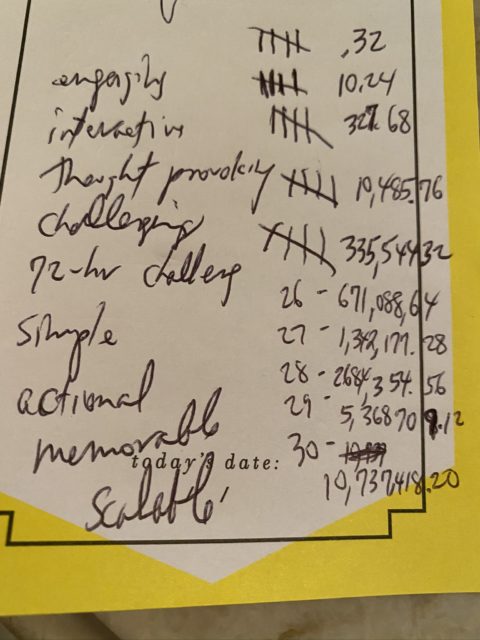 .32
engaging 10.24
interactive 327.68
thought provoking 10,485.76
challenging 335,544.32
72-hr challeng
26 - 671,088.64
simple 27 - 1,342,177.28
28 - 2684,354.56
actional 29 - 5,368709.12
memorable 30 -
today's date:
10,737418.20
scalable